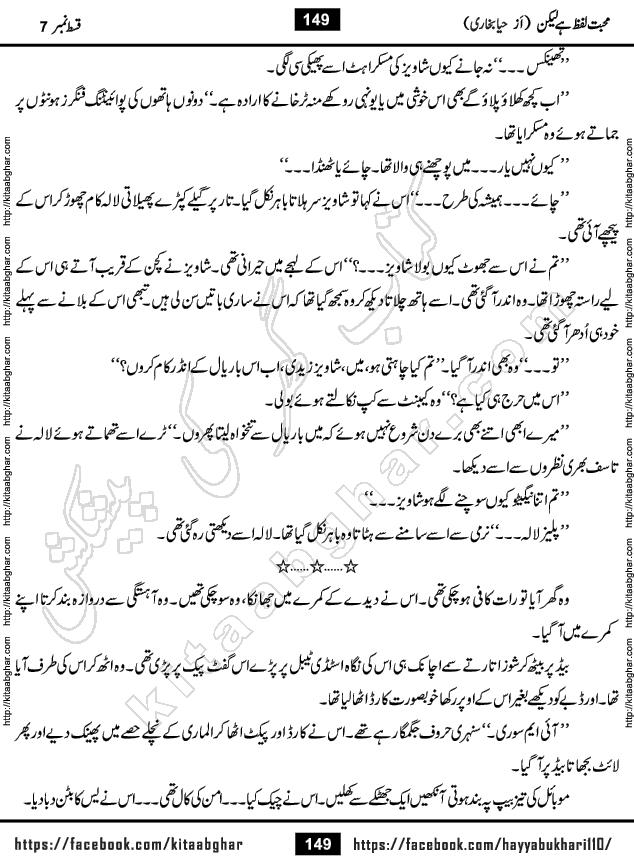 محبت لفظ ہے لیکن (اَز حیا بخاری)
149
قسط نمبر 7
’’تھینکس ۔۔۔‘‘ نہ جانے کیوں شاویز کی مسکراہٹ اسے پھیکی سی لگی۔
’’اب کچھ کھلاؤ پلاؤ گے بھی اس خوشی میں یا یونہی روکھے منہ ٹرخانے کا ارادہ ہے۔‘‘ دونوں ہاتھوں کی پوائینٹنگ فنگرز ہونٹوں پر
جماتے ہوئے وہ مسکرایا تھا۔
’’کیوں نہیں یار۔۔۔ میں پوچھنے ہی والا تھا۔ چائے یا ٹھنڈا ۔۔۔‘‘
’’چائے ۔۔۔ ہمیشہ کی طرح ۔۔۔‘‘ اس نے کہا تو شاویز سر ہلاتا باہر نکل گیا۔ تار پر گیلے کپڑے پھیلاتی لالہ کام چھوڑ کر اس کے
پیچھے آئی تھی۔
’’تم نے اس سے جھوٹ کیوں بولا شاویز ۔۔۔؟‘‘ اس کے لہجے میں حیرانی تھی۔ شاویز نے کچن کے قریب آتے ہی اس کے
لیے راستہ چھوڑا تھا۔ وہ اندر آ گئی تھی۔ اسے ہاتھ چلاتا دیکھ کر وہ سمجھ گیا تھا کہ اس نے ساری باتیں سن لی ہیں۔ تبھی اس کے بلانے سے پہلے
خود ہی اُدھر آ گئی تھی۔
’’تو۔۔۔‘‘ وہ بھی اندر آ گیا۔ ’’تم کیا چاہتی ہو، میں، شاویز زیدی، اب اس باریال کے انڈر کام کروں؟‘‘
’’اس میں حرج ہی کیا ہے؟‘‘ وہ کیبنٹ سے کپ نکالتے ہوئے بولی۔
’’میرے ابھی اتنے بھی برے دن شروع نہیں ہوئے کہ میں باریال سے تنخواہ لیتا پھروں۔‘‘ ٹرے اسے تھماتے ہوئے لالہ نے
تاسف بھری نظروں سے اسے دیکھا۔
’’تم اتنا نیگیٹو کیوں سوچنے لگے ہو شاویز ۔۔۔‘‘
’’پلیز لالہ ۔۔۔‘‘ نرمی سے اسے سامنے سے ہٹاتا وہ باہر نکل گیا تھا۔ لالہ اسے دیکھتی رہ گئی تھی۔
☆......☆......☆
وہ گھر آیا تو رات کافی ہو چکی تھی۔ اس نے دیدے کے کمرے میں جھانکا، وہ سو چکی تھیں۔ وہ آہستگی سے دروازہ بند کرتا اپنے
کمرے میں آ گیا۔
بیڈ پر بیٹھ کر شوز اتارتے سے اچانک ہی اس کی نگاہ اسٹڈی ٹیبل پر پڑے اس گفٹ پیک پر پڑی تھی۔ وہ اٹھ کر اس کی طرف آیا
تھا۔ اور ڈبے کو دیکھے بغیر اس کے اوپر رکھا خوبصورت کارڈ اٹھا لیا تھا۔
’’آئی ایم سوری۔‘‘ سنہری حروف جگمگا رہے تھے۔ اس نے کارڈ اور پیکٹ اٹھا کر الماری کے نچلے حصے میں پھینک دیے اور پھر
لائٹ بجھاتا بیڈ پر آ گیا۔
موبائل کی تیز بیپ پہ بند ہوتی آنکھیں ایک جھٹکے سے کھلیں۔ اس نے چیک کیا۔۔۔ امن کی کال تھی۔۔۔ اس نے لیس کا بٹن دبا دیا۔
کتاب گھر کی پیشکش
kitaabghar.com
http://kitaabghar.com http://kitaabghar.com http://kitaabghar.com http://kitaabghar.com http://kitaabghar.com http://kitaabghar.com
http://kitaabghar.com http://kitaabghar.com http://kitaabghar.com http://kitaabghar.com http://kitaabghar.com http://kitaabghar.com
https://facebook.com/kitaabghar
149
https://facebook.com/hayyabukhari110/